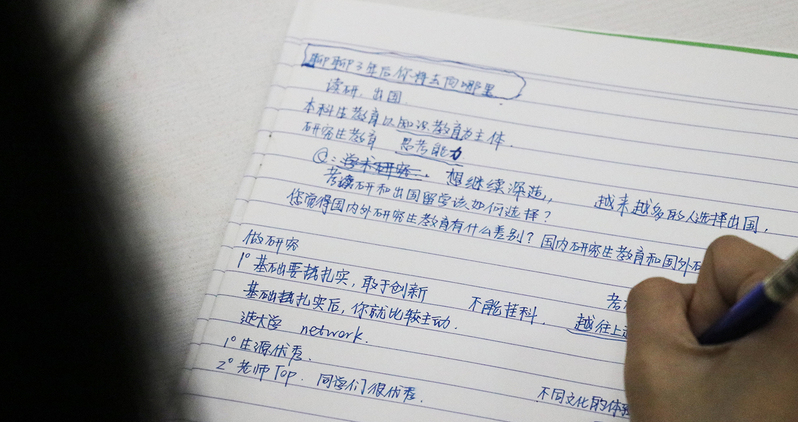 聊聊3年后你将去向哪里
读研、出国
本科生教育以知识教育为主体.
研究生教育 思考能力
Q:学术研究. 想继续深造, 越来越多的人选择出国.
考读研和出国留学该如何选择?
您觉得国内外研究生教育有什么差别? 国内研究生教育和国外研
做研究
1° 基础要搞扎实, 敢于创新 不能挂科. 越往上
基础搞扎实后, 你就比较主动.
进大学 network.
1° 生源优秀.
2° 老师Top. 同学们很优秀. 不同文化的体